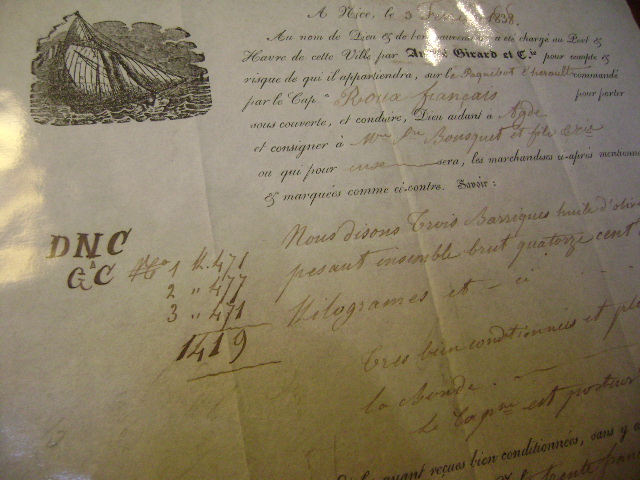 A Nice, le 3 1838.
Au nom de Dieu & de bon sauvement a été chargé au Port &
Havre de cette Ville, par André Girard et C.ie pour compte &
risque de qui il appartiendra, sur le Paquebot l'hérault commandé
par le Cap.e Roux français pour porter
sous couverte, et conduire, Dieu aidant à Agde
et consigner à Bousquet et fils
ou qui pour eux sera, les marchandises ci-après mentionné
& marquées comme ci-contre. Savoir:
DNC
à
GC
Nous disons Trois Barriques huile d'olive
N.o 1 K. 471
pesant ensemble brut quatorze cent
2 " 477
Kilogrames et - ci
3 " 471
1419
Tres bien conditionnées et
la Bonde.
le Cap.ne est porteur
ayant reçues bien conditionnées, sans y a
trente franc